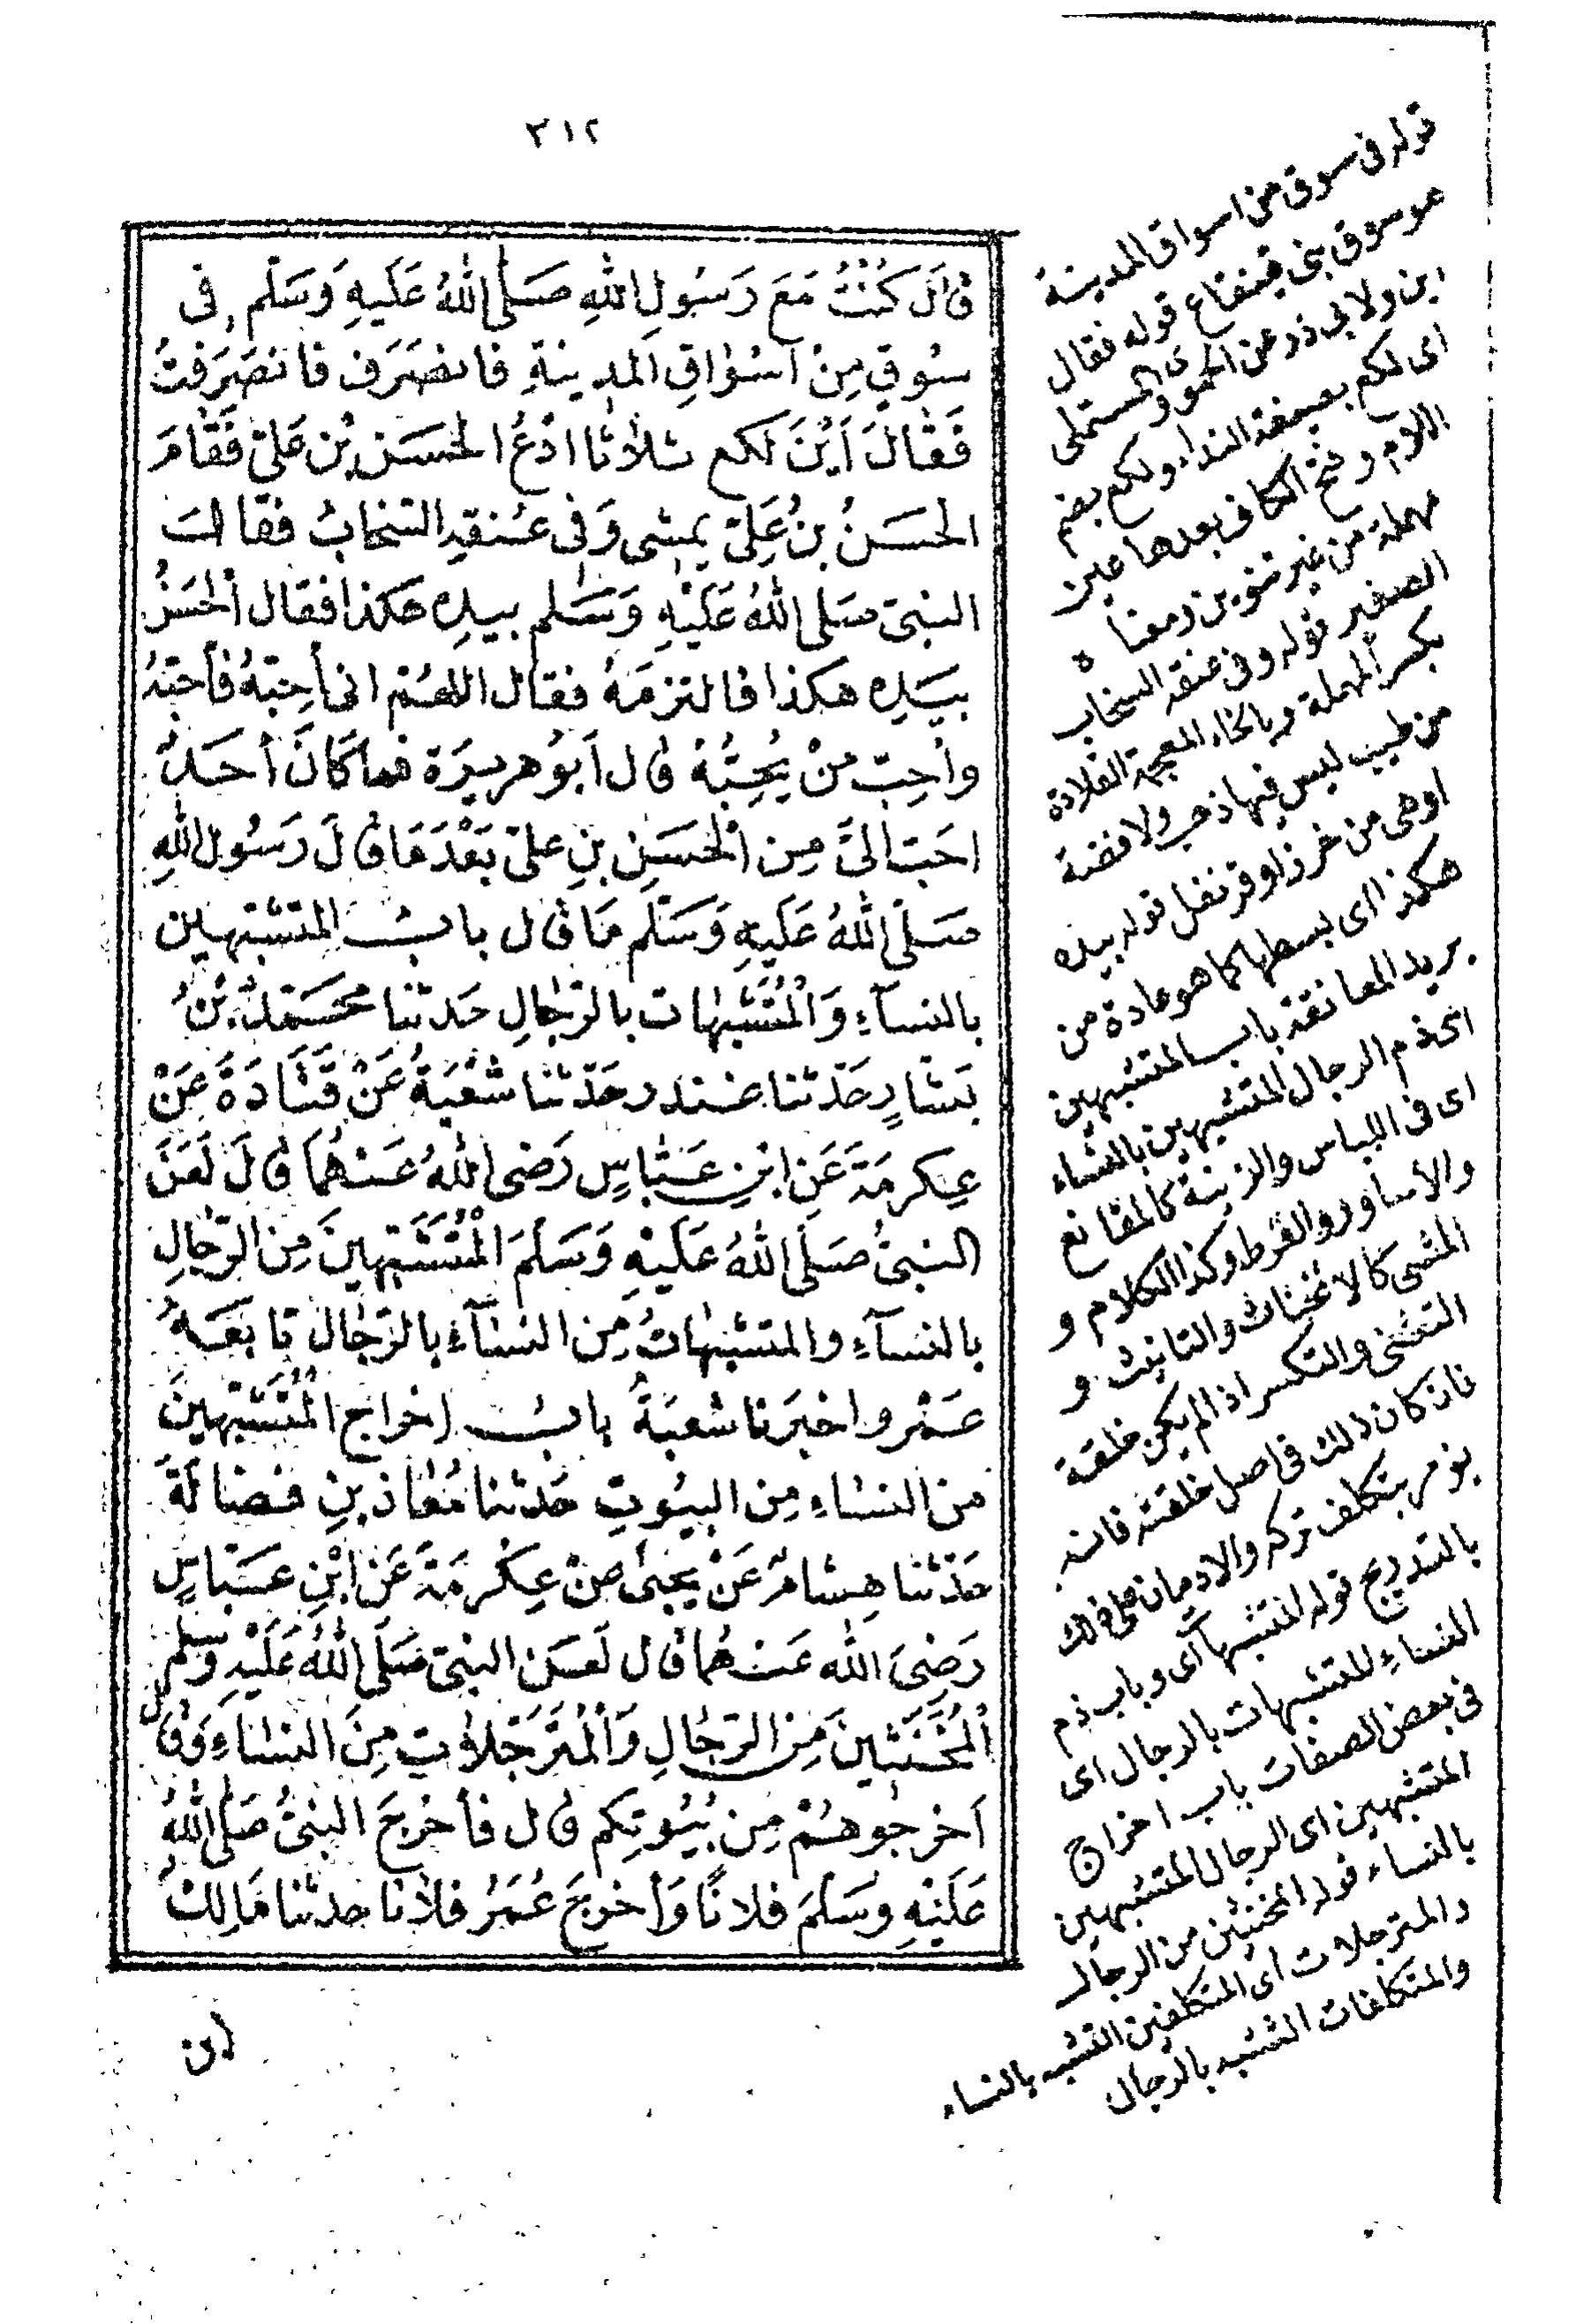 ٣١٢
قال كُنْتُ مَعَ رَسُولِ اللهِ صَلَّى اللهُ عَلَيهِ وَسَلَّم فى
سُوقٍ مِنْ اَسْوٰاقِ المدِينةِ فانصَرَف فانصَرَفتُ
فَقٰالَ اَيْنَ لكع ثلاثا ادْعُ الحسَنَ بْن عَلىّ فَقٰامَ
الحسَنُ بنُ عَلِىّ يمشى وَفى عُنقِهِ السّخابُ فقالَ
النبىّ صَلى اللهُ عَلَيْهِ وَسَلم بيدِه هَكذا فقال الْحَسَنُ
بيَدِه هكذا فالتزمَهُ فقال اللهُمّ انى أحِبّهُ فأحِبّهُ
وأحِبّ مَنْ يُحِبُّهُ قال اَبوُهريرَة فما كَانَ أحَدٌ
احَبّ الىَّ مِن الْحَسَنِ بنِ علىّ بَعْدَ مَا قالَ رَسُول اللهِ
صَلّى اللهُ عَلَيهِ وَسَلّم مَا قال بابُ المتشبّهين
بالنسآءِ وَالْمُتَشَبّهات بالرّجٰالِ حَدثنا محَمّدُ بْنُ
بَشّارٍ حَدّثنا غندر حَدّثنا شُعْبَةُ عَنْ قَتَادَةَ عَنْ
عِكرمَةَ عَنِ ابْنِ عَبّاسٍ رَضى اللهُ عَنْهُمَا قالَ لَعَنَ
النبىُّ صَلّى اللهُ عَلَيْهِ وَسَلّمَ الْمُتَشَبّهينَ مِن الرّجٰالِ
بالنسَآءِ والمتشبّهاتُ مِن النسآءِ بالرّجٰال تابَعَهُ
عَمْرو اخبَرنا شعبَةُ بابُ اخراج الْمُتَشَبّهينَ
من النسٰاءِ مِن البيُوتِ حَدثنا مُعٰاذ بنِ فضالَةَ
حَدّثنا هِشامٌ عَنْ يحيٰى عَنْ عِكْرِمَةَ عَنِ ابْنِ عَبّاسٍ
رَضِىَ الله عَنهُما قال لَعَن النبىّ صَلّى اللهُ عَلَيْهِ وَسلم
الْمُخَنّثينَ مِنَ الرّجٰالِ وَالْمُتَرَجّلاٰتِ مِنَ النسٰاءِ وَقال
اَخرجُوهُمْ مِن بُيُوتِكم قال فأخرجَ النبىُّ صَلى اللهُ
عَلَيْهِ وَسَلّمَ فلانًا وَأخرجَ عُمَرُ فلانا حدثنا مَالِكُ
بن
قوله فى سوق من اسواق المدينة
هو سوق بنى قينقاع قوله فقال
اين ولابى ذر عن الحموى والمستملى
اى لكع بصيغة النداء ولكع بضم
اللام وفتح الكاف بعدها عين
مهملة من غير تنوين ومعناه
الصغير قوله وفى عنقه السخاب
بكسر المهملة وبالخاء المعجمة القلادة
من طيب ليس فيها ذهب ولا فضة
اوهى من خرز او قرنفل قوله بيده
هكذا اى بسطها كما هو عادة من
يريد المعانقة باب المتشبهين
اى ذم الرجال المتشبهين بالنساء
اى فى اللباس والزينة كالمقانع
والاساور والقرط وكذا الكلام و
المشى كالانخناث والتانيث و
التثنى والتكسر اذا لم يكن خلقة
فان كان ذلك فى اصل خلقته فانه
يؤمر بتكلف تركه والادمان على ذلك
بالتدريج قوله المتشبهات اى وباب ذم
النساء المتشبهات بالرجال اى
فى بعض الصفات باب اخراج
المتشبهين اى الرجال المتشبهين
بالنساء قوله المخنثين من الرجال
والمترجلات اى المتكلفين التشبه بالنساء
والمتكلفات التشبه بالرجال